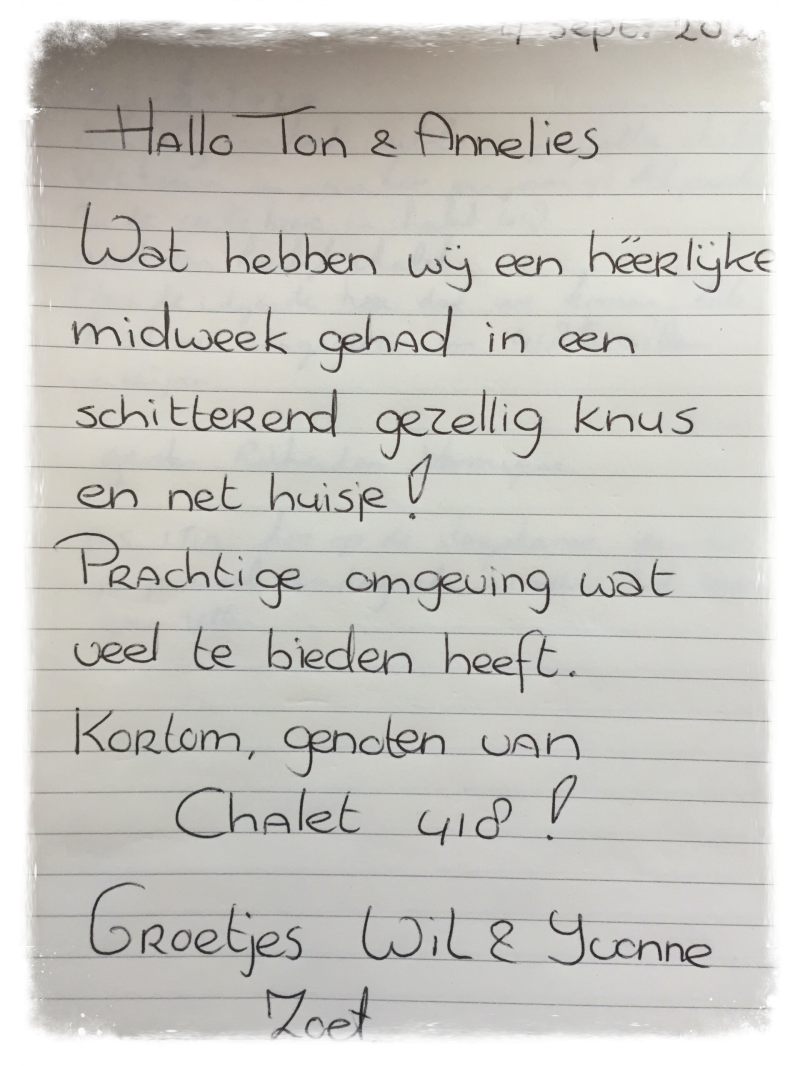 Sept.
Hallo Ton & Annelies
Wat hebben wij een hëerlijke
midweek gehad in een
schitterend gezellig knus
en net huisje!
Prachtige omgeving wat
veel te bieden heeft.
Kortom, genoten van
Chalet 418!
Groetjes Wil & Yvonne
Zoet